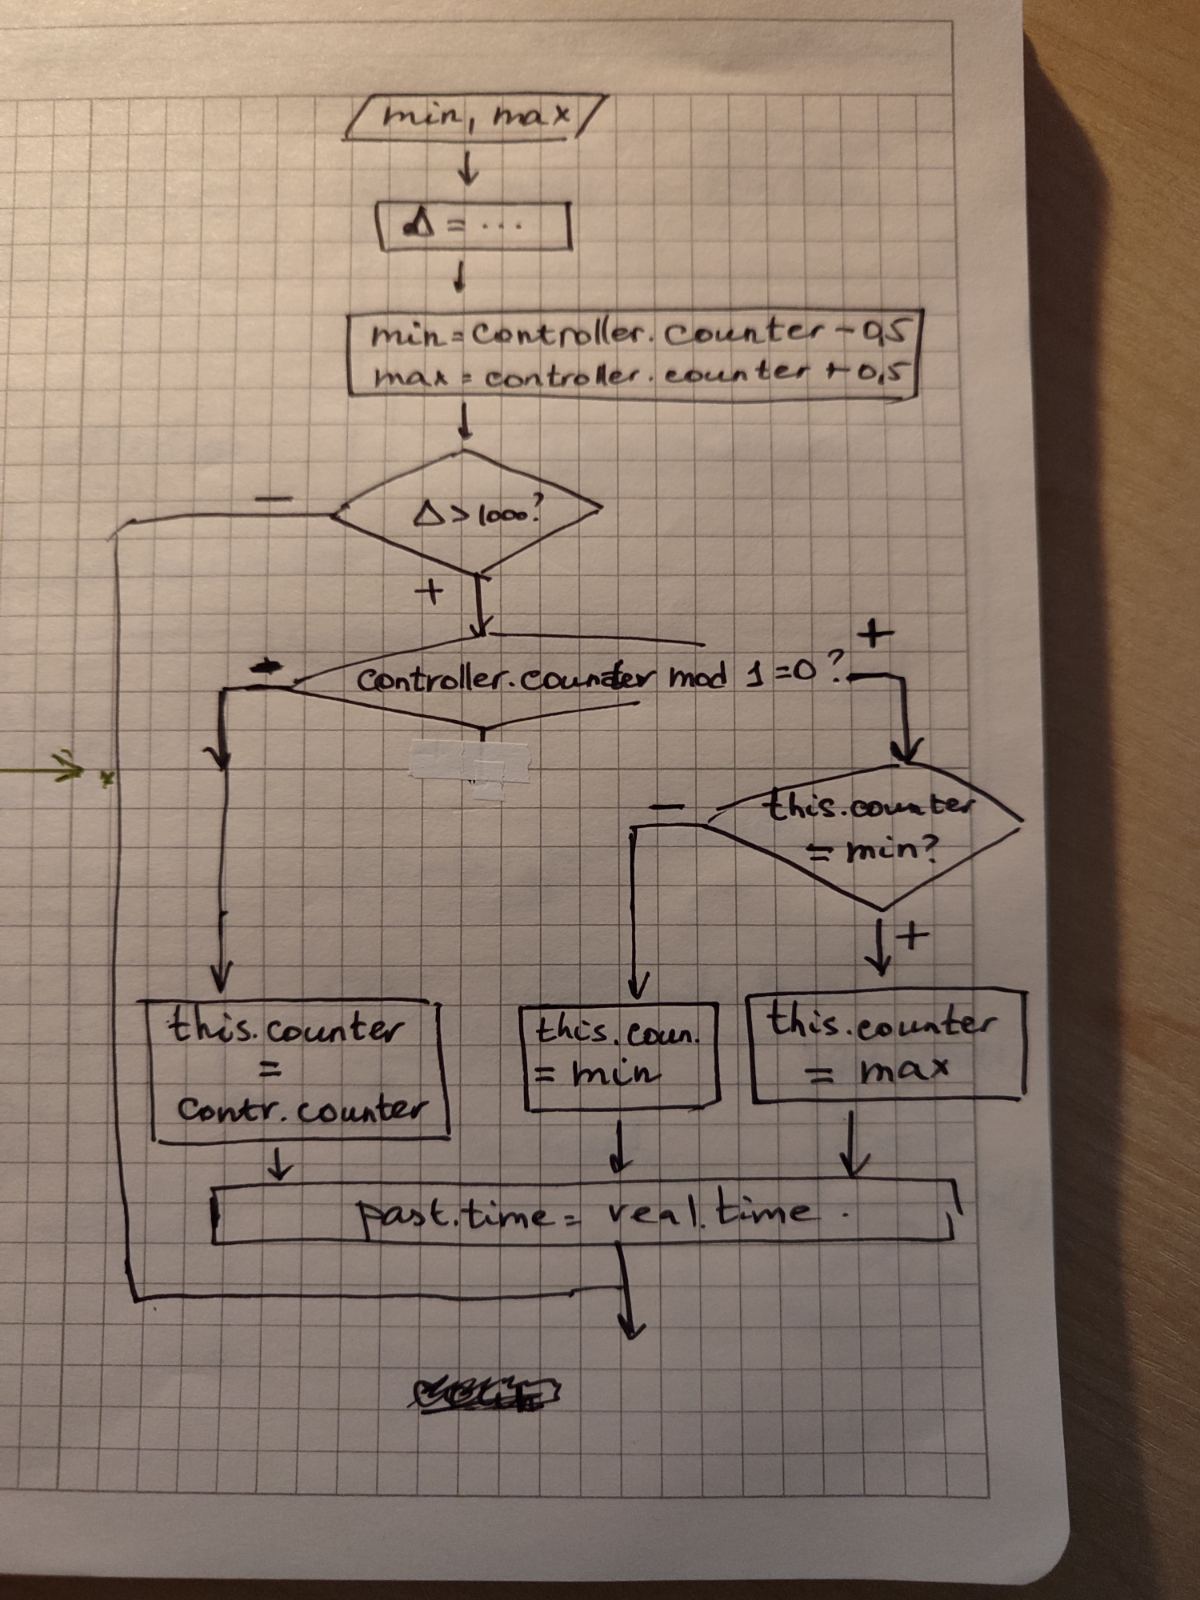 min, max
Δ = ...
min = controller.counter - 0,5
max = controller.counter + 0,5
Δ > 1000?
-
+
controller.counter mod 1 = 0?
-
+
this.counter
= min?
-
+
this.counter
=
contr.counter
this.coun.
= min
this.counter
= max
past.time = real.time.